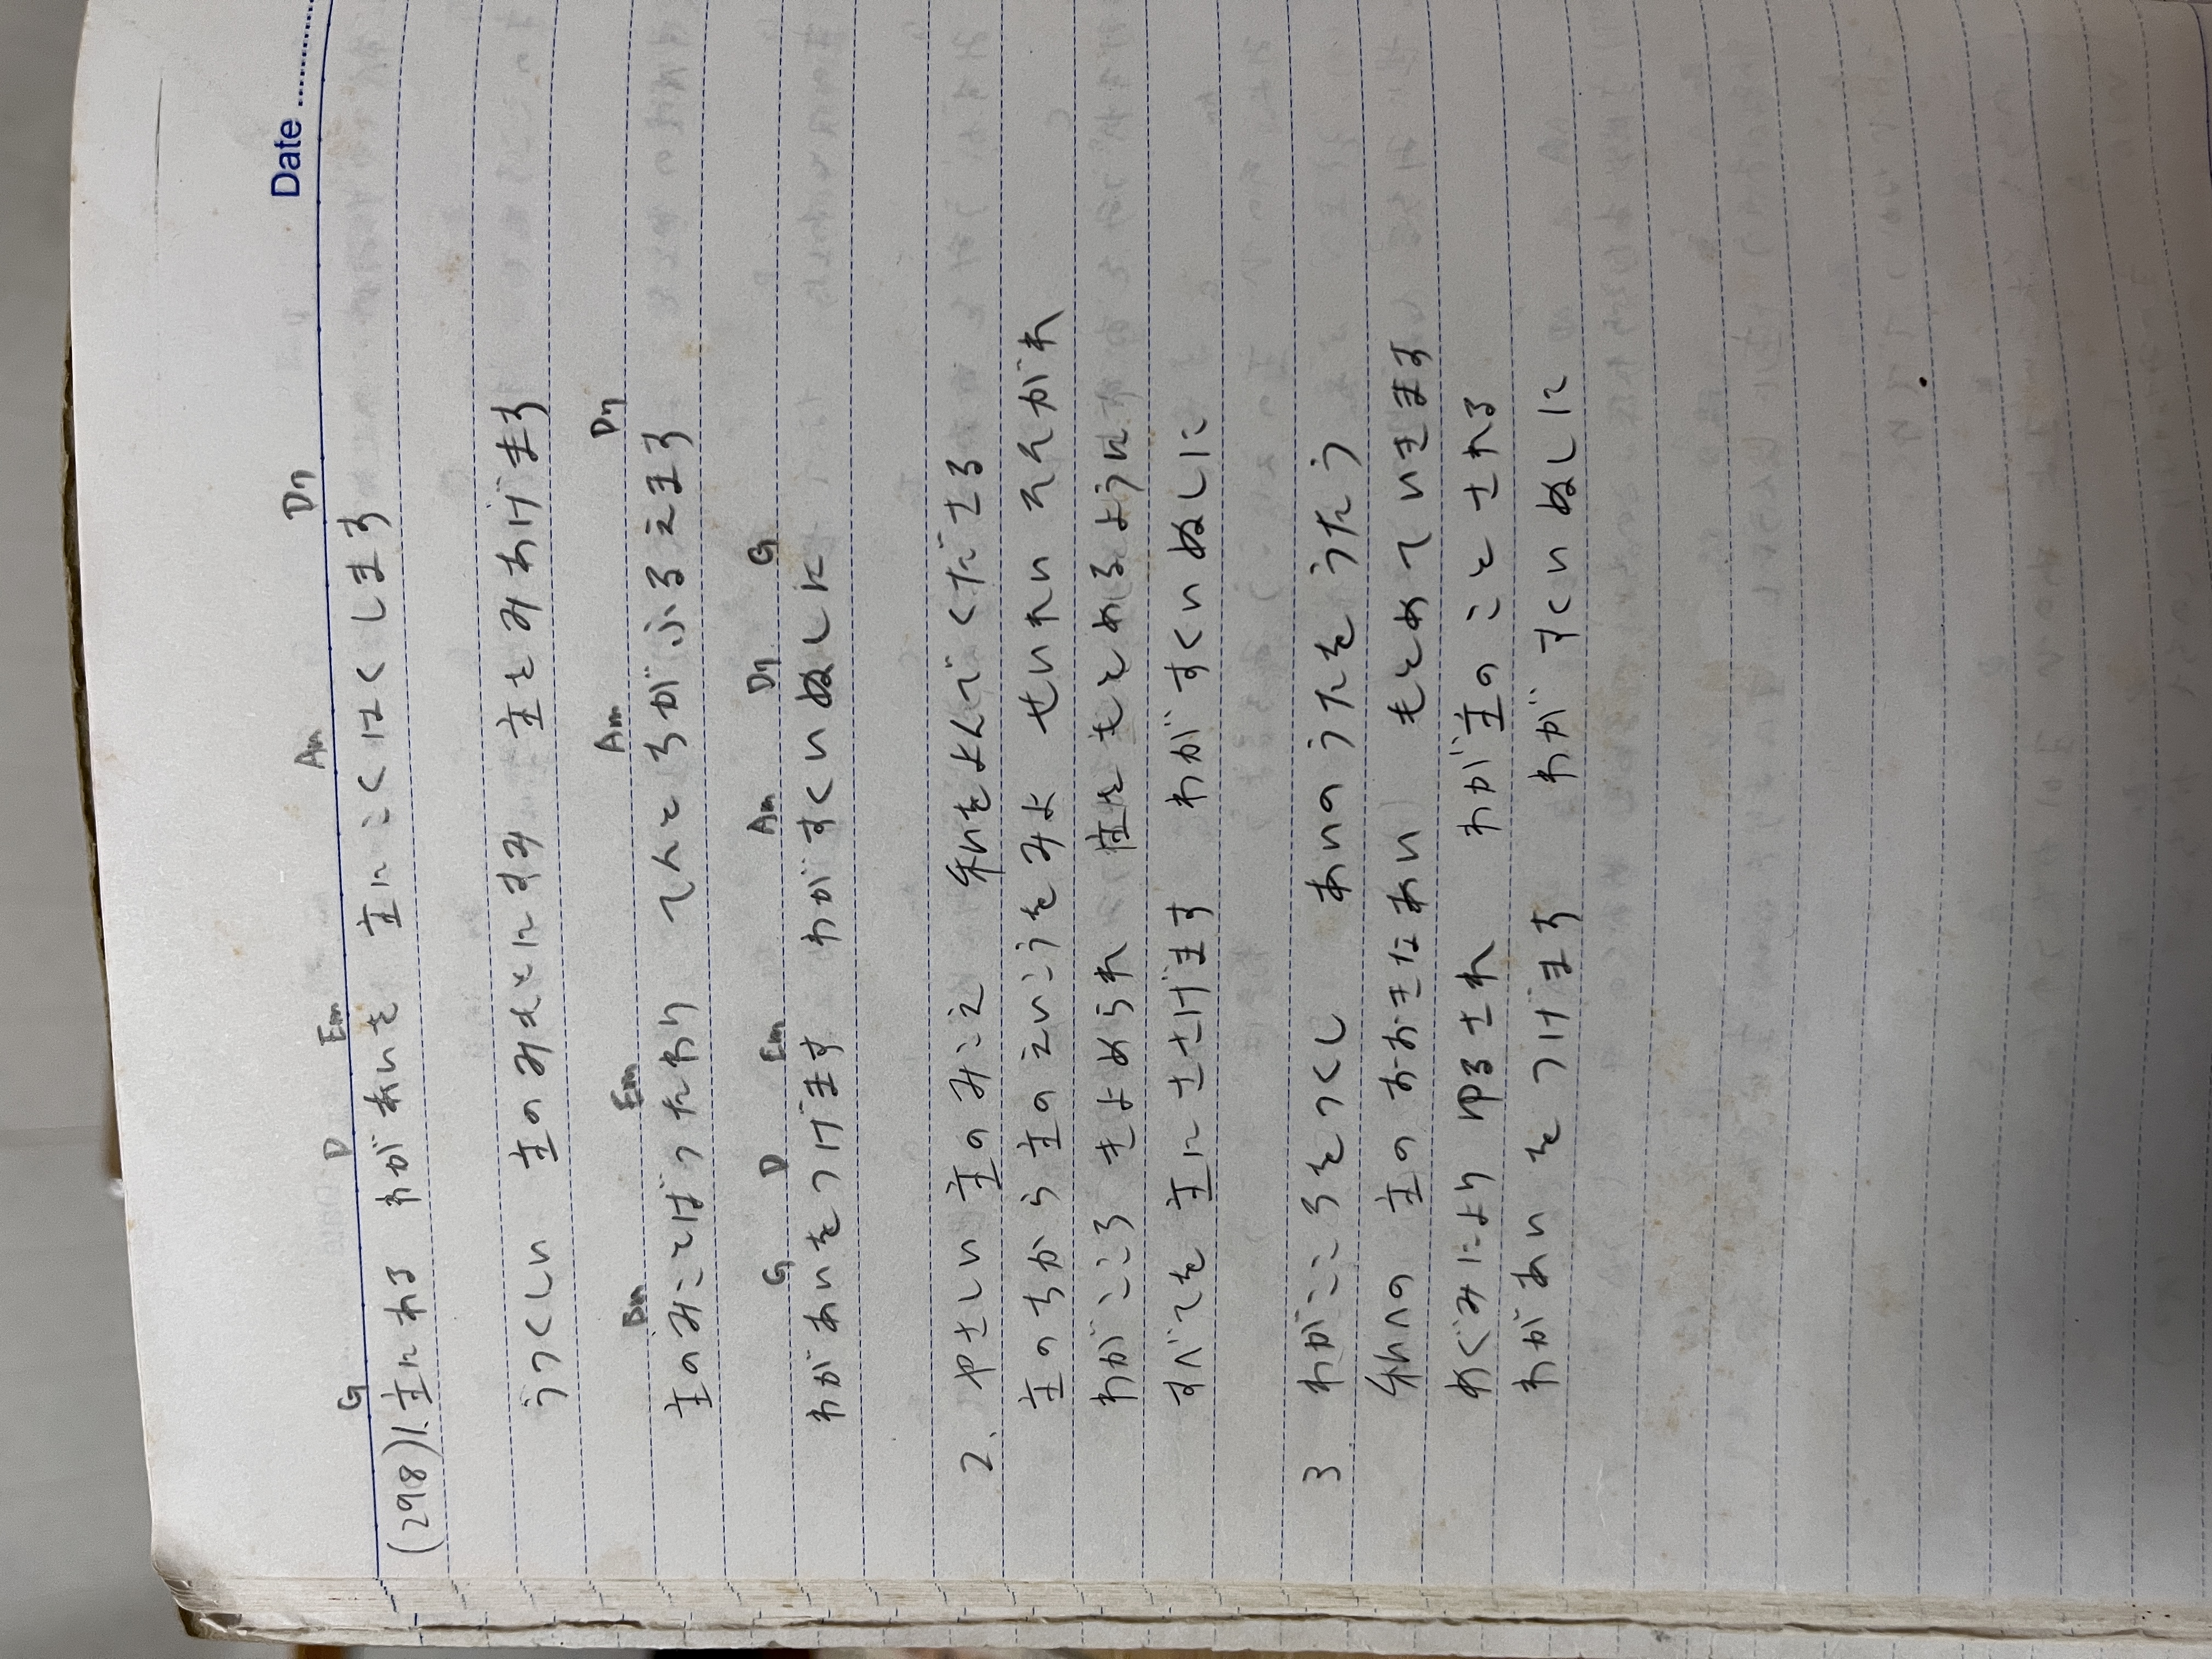 Date
G D Em Am D7
(298) 1. 主にわる わがあいを 主にこくはくします
うつくしい 主のみもとにすみ 主をみあげます
Bm Em Am D7
主のみことばつたわり てんところがふるえます
G D Em Am D7 G
わがあいをつげます わがすくいぬしに
2. やさしい 主のみこえ 私をよんでくださる
主のちから主のえいこうをみよ せいれい そそがれ
わがこころ きよめられ 主をもとめるように
すべてを 主にささげます わがすくいぬしに
3 わがこころをつくし あいのうたをうたう
私への 主の おおきなあい もとめていきます
めぐみにより ゆるされ わが主のこととされる
わがあい をつげます わがすくいぬしに